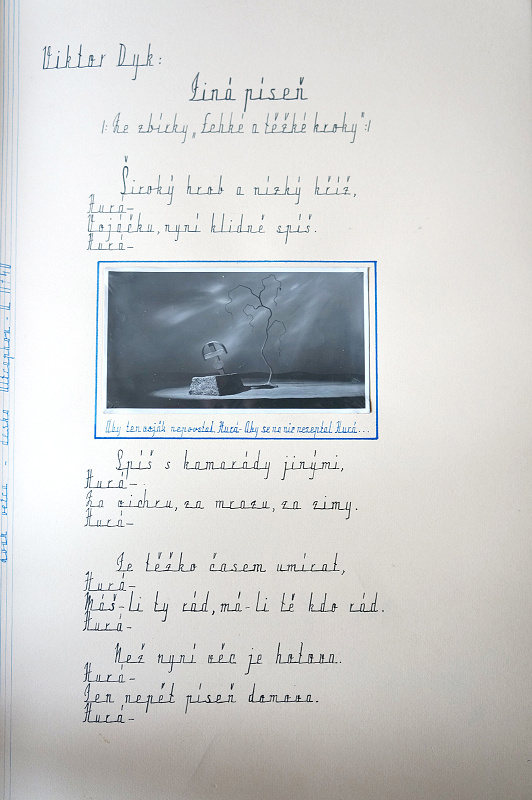 Viktor Dyk:
Jiná píseň
/: Ze zbírky „Lehké a těžké kroky“:/
Široký hrob a nízký kříž,
Hurá-
Vojáčku, nyní klidně spíš.
Hurá-
Aby ten voják nepovstal Hurá- Aby se na nic nezeptal Hurá...
Spíš s kamarády jinými,
Hurá-
Za vichru, za mrazu, za zimy.
Hurá-
Je těžko časem umírat,
Hurá-
Máš-li ty rád, má-li tě kdo rád.
Hurá-
Než nyní věc je hotova.
Hurá-
Jen nepět píseň domova.
Hurá-
zvuk větru - deska